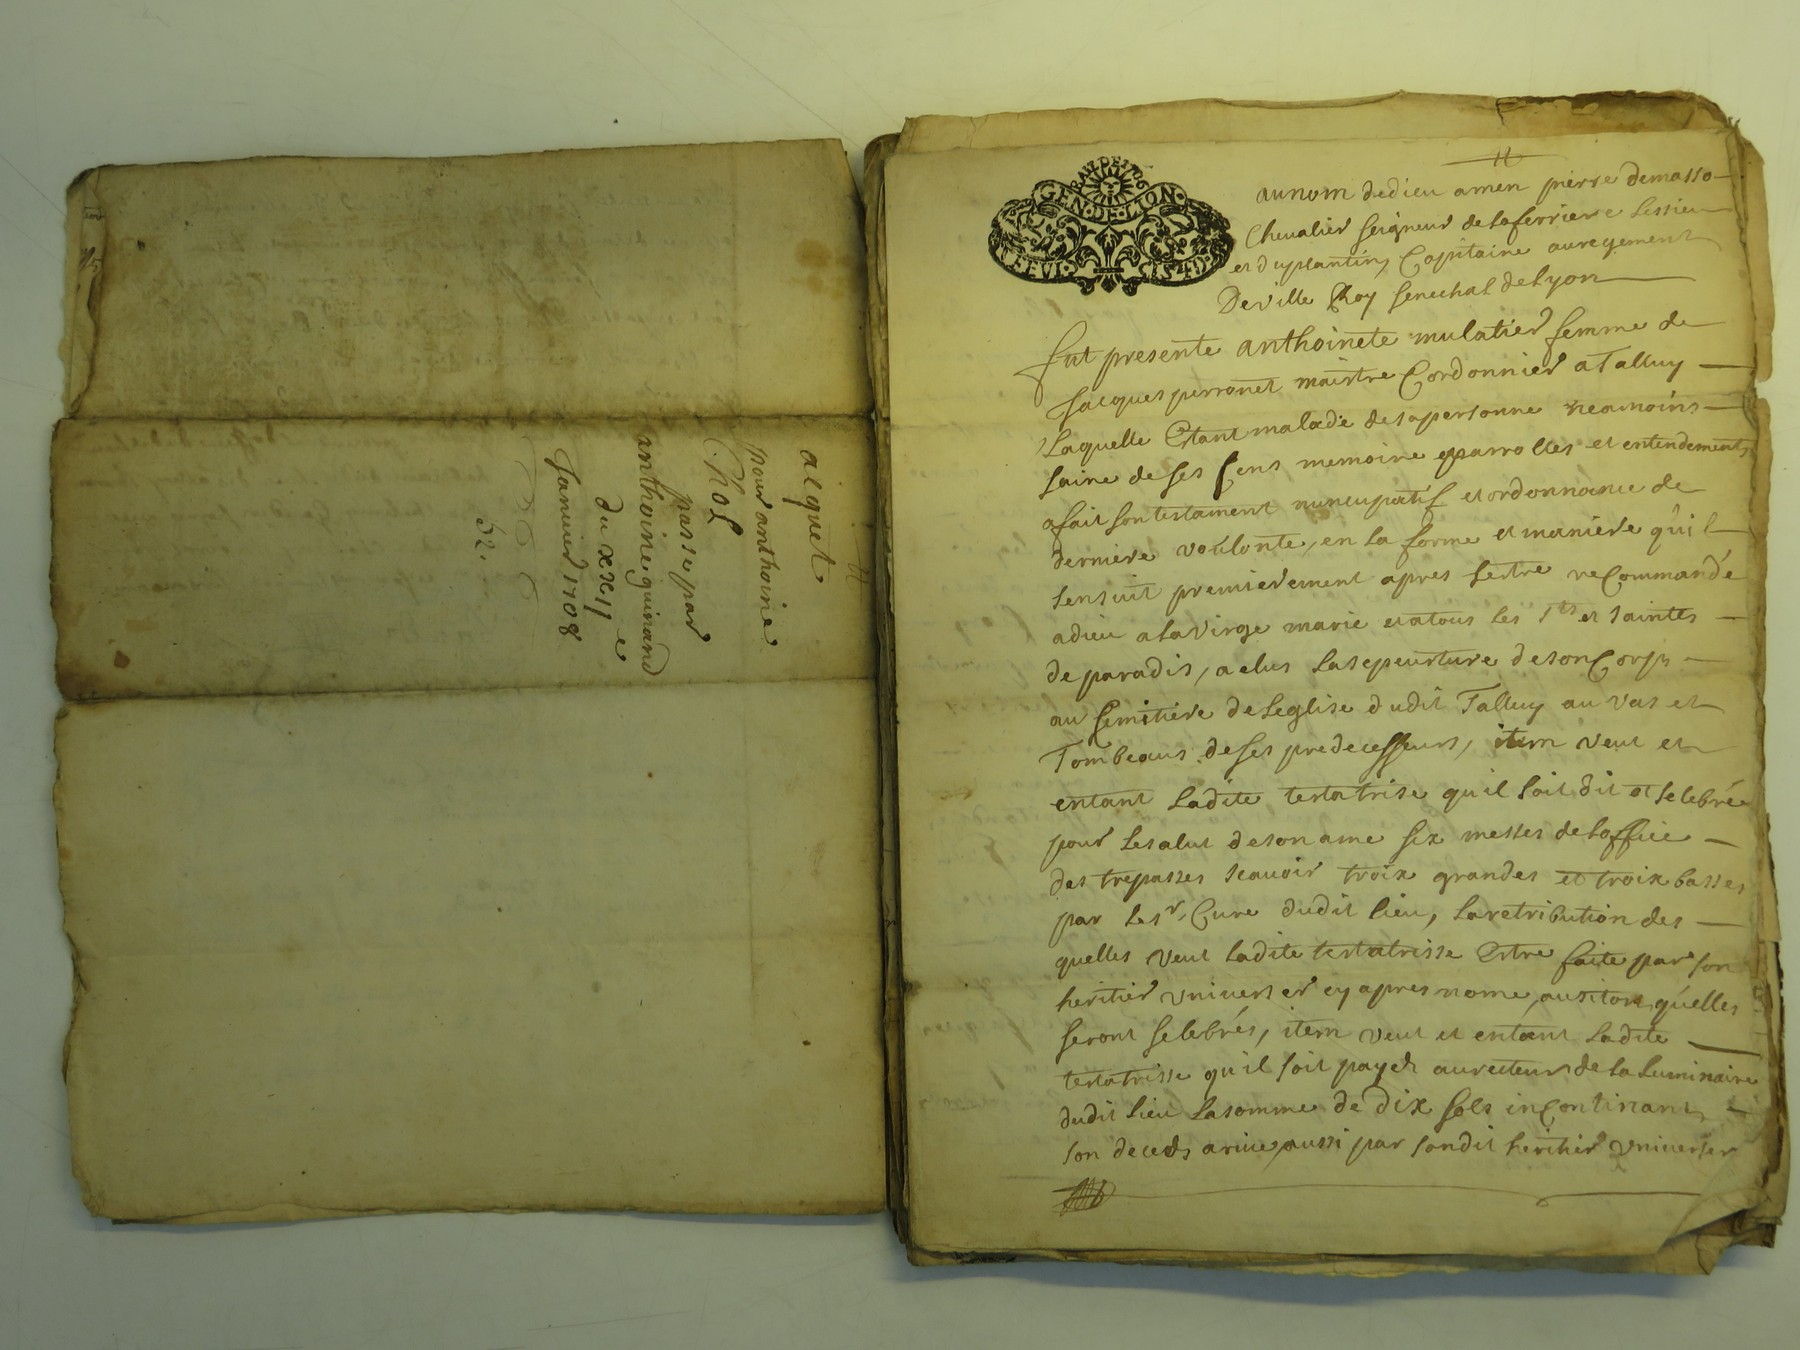 acquet
pour anthoine
Chol
passe par
anthoine guinand
du xxij e
Janvier 1708
52.
GEN·DE·LYON
au nom de dieu amen pierre demasso
Chevalier seigneur de laferriere Lessieu
et duplantin, Capitaine auregement
De ville Roy senechal de Lyon
fut presente anthoinete mulatier femme de
Jacques perronet maistre Cordonnier a Talluy
Laquelle Estant malade de sa personne neamoins
saine de ses sens memoire parrolles et entendement
a fait son testament nuncupatif et ordonnance de
derniere voulonte, en la forme et maniere qu'il
sensuit premierement apres sestre recommandé
a dieu a la virge marie et a tous les sts et saintes
de paradis, a elus la sepeurture de son Corps
au semitiere de Leglise dudit Talluy au vas et
Tombeaus de ses predecesseurs, item veut et
entant Ladite testatrise quil soit dit et selebré
pour le salut de son ame six messes de loffice
des trepasses scauoir troix grandes et troix basses
par le sr. Cure dudit lieu, la retribution des
quelles veut Ladite testatrisse Estre faite par son
heritier universer cy apres nome, ausitont quelles
seront selebrés, item veut et entant Ladite
testatrisse quil soit payer au recteur de la Luminaire
dudit lieu la somme de dix sols incontinant
son deceds arive aussi par sondit heritier universer